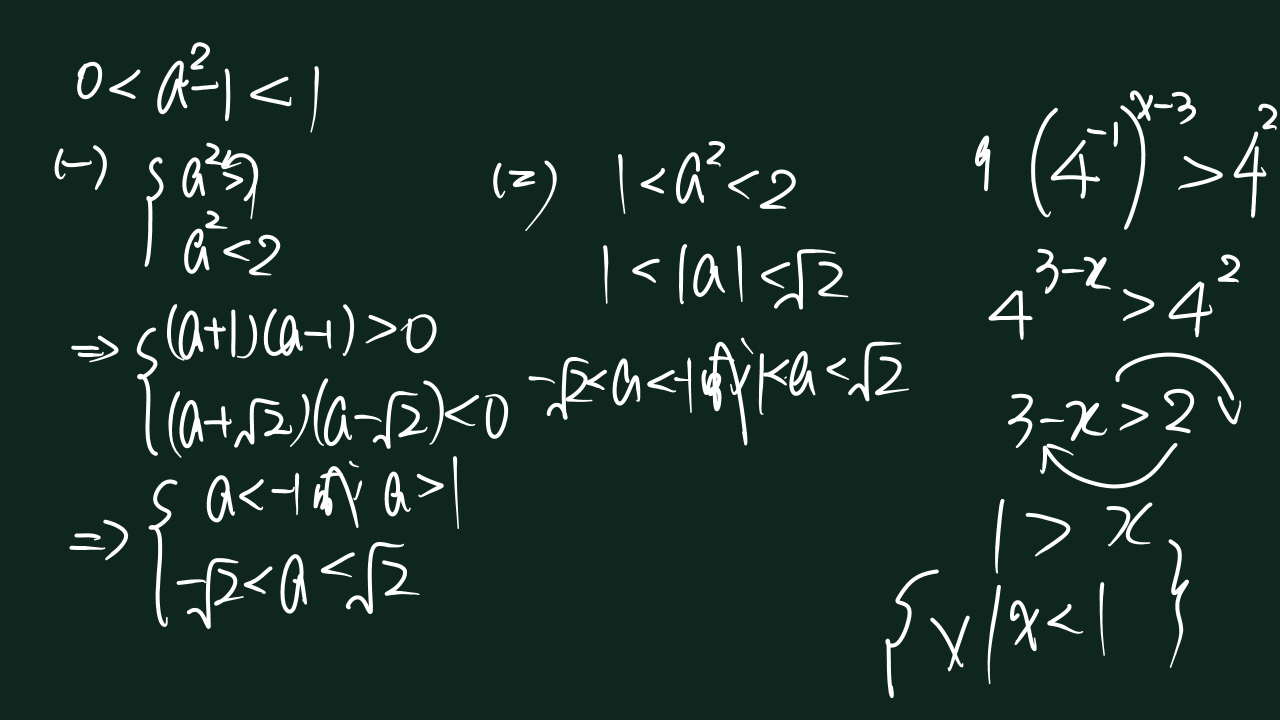 0 < a²-1 < 1
(一) { a² > 1
a² < 2
⇒ { (a+1)(a-1) > 0
(a+√2)(a-√2) < 0
⇒ { a < -1 或 a > 1
-√2 < a < √2
(二) 1 < a² < 2
1 < |a| < √2
-√2 < a < -1 或 1 < a < √2
9 (4⁻¹)ˣ⁻³ > 4²
4³⁻ˣ > 4²
3-x > 2
1 > x
{ x | x < 1 }